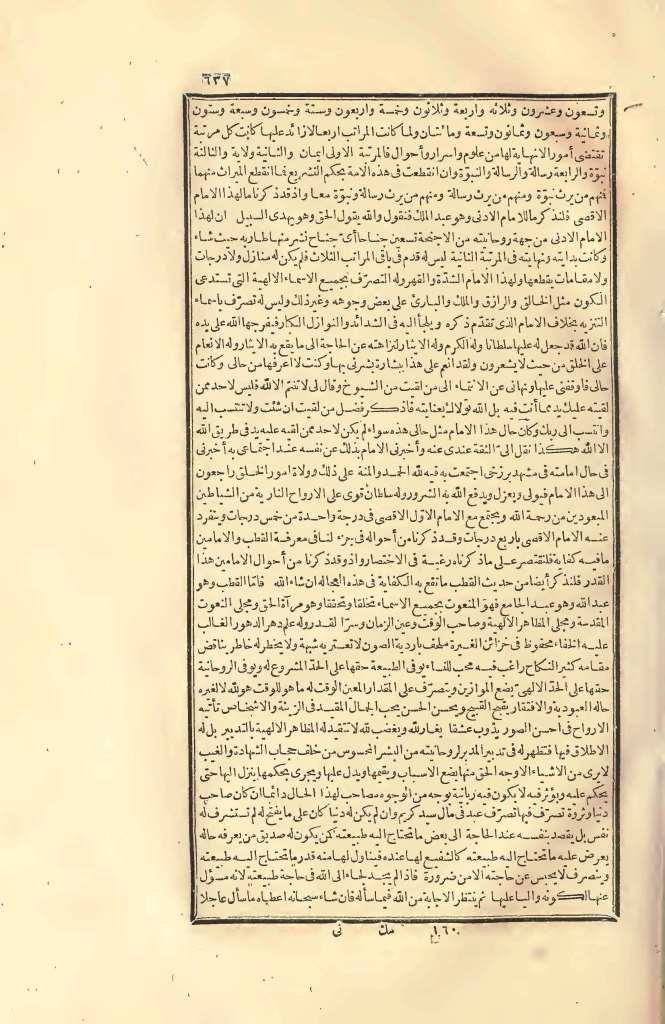 ٦٣٧
وتسعون وعشرون وثلاثه واربعة وثلاثون وخمسة واربعون وستة وخمسون وسبعة وستون
وثمانية وسبعون وثمانون وتسعة ومائتان ولما كانت المراتب اربعا لا زائد عليها كانت كل مرتبة
تقتضى أمورا لا نهاية لها من علوم واسرار وأحوال فالمرتبة الاولى ايمان والثانية ولاية والثالثة
نبوّة والرابعة رسالة والرسالة والنبوّة وان انقطعت فى هذه الامة بحكم التشريع فما انقطع الميراث منهما
فمنهم من يرث نبوّة ومنهم من يرث رسالة ومنهم من يرث رسالة ونبوّة معا واذ قد ذكرنا ما لهذا الامام
الاقصى فلنذكر ما للامام الادنى وهو عبد الملك فنقول والله يقول الحق وهو يهدى السبيل ان لهذا
الامام الادنى من جهة روحانيته من الاجنحة تسعين جناحا أىّ جناح نشر منها طار به حيث شاء
وكانت بدايته ونهايته فى المرتبة الثانية ليس له قدم فى باقى المراتب الثلاث فلم يكن له منازل ولا درجات
ولا مقامات يقطعها ولهذا الامام الشدّة والقهر وله التصرّف بجميع الاسماء الالهية التى تستدعى
الكون مثل الخالق والرازق والملك والبارئ على بعض وجوهه وغير ذلك وليس له تصرّف بأسماء
التنزيه بخلاف الامام الذى تقدّم ذكره ويلجأ اليه فى الشدائد والنوازل الكبار فيفرجها الله على يده
فان الله قد جعل له عليها سلطانا وله الكرم وله الايثار لنزاهته عن الحاجة الى ما يقع به الايثار وله الانعام
على الخلق من حيث لا يشعرون ولقد انعم على هذا ببشارة بشرنى بها وكنت لا اعرفها من حالى وكانت
حالى فاوقفنى عليها ونهانى عن الانتماء الى من لقيت من الشيوخ وقال لى لا تنتم الا لله فليس لاحد ممن
لقيته عليك يد مما أنت فيه بل الله تولاك بعنايته فاذكر فضل من لقيت ان شئت ولا تنتسب اليه
وانتسب الى ربك وكان حال هذا الامام مثل حالى هذه سواء لم يكن لاحد ممن لقيه عليه يد فى طريق الله
الا الله هكذا نقل الىّ الثقة عندى عنه وأخبرنى الامام بذلك عن نفسه عند اجتماعى به أخبرنى
فى حال امامته فى مشهد برزخى اجتمعت به فيه لله الحمد والمنة على ذلك وولاة امور الخلق راجعون
الى هذا الامام فيولى ويعزل ويدفع الله به الشرور وله سلطان قوى على الارواح النارية من الشياطين
المبعودين من رحمة الله ويجتمع مع الامام الاوّل الاقصى فى درجة واحدة من خمس درجات وينفرد
عنه الامام الاقصى باربع درجات وقد ذكرنا من أحواله فى جزء لنا فى معرفة القطب والامامين
ما فيه كفاية فلنقتصر على ما ذكرناه رغبة فى الاختصار واذ قد ذكرنا من أحوال الامامين هذا
القدر فلنذكر أيضا من حديث القطب ما تقع به الكفاية فى هذه العجالة ان شاء الله فأمّا القطب وهو
عبد الله وهو عبد الجامع فهو المنعوت بجميع الاسماء تخلقا وتحققا وهو مرآة الحق ومجلى النعوت
المقدسة ومجلى المظاهر الالهية وصاحب الوقت وعين الزمان وسرّ القدر وله علم دهر الدهور الغالب
عليه الخفاء محفوظ فى خزائن الغيرة ملتحف باردية الصون لا تعتريه شبهة ولا يخطر له خاطر يناقض
مقامه كثير النكاح راغب فيه محب للنساء يوفى الطبيعة حقها على الحدّ المشروع له ويوفى الروحانية
حقها على الحدّ الالهىّ يضع الموازين ويتصرّف على المقدار المعين الوقت له ما هو للوقت هو لله لا لغيره
حاله العبودية والافتقار يقبح القبيح ويحسن الحسن يحب الجمال المقيد فى الزينة والاشخاص تأتيه
الارواح فى احسن الصور يذوب عشقا يغار لله ويغضب لله لا تتقيد له المظاهر الالهية بالتدبير بل له
الاطلاق فيها فتظهر له فى تدبير المدبر لروحانيته من البشر المحسوس من خلف حجاب الشهادة والغيب
لا يرى من الاشياء الا وجه الحق منها يضع الاسباب ويقيمها ويدل عليها ويجرى بحكمها ينزل اليها حتى
يحكم عليه ويؤثر فيه لا يكون فيه ربانية بوجه من الوجوه مصاحب لهذا الحال دائما ان كان صاحب
دنيا وثروة تصرّف فيها تصرّف عبد فى مال سيد كريم وان لم يكن له دنيا كان على ما يفتح له لم تستشرف له
نفس بل يقصد بنفسه عند الحاجة الى بعض ما تحتاج اليه طبيعته كمن يكون له صديق من يعرفه حاله
يعرض عليه ما تحتاج اليه طبيعته كالشفيع لها عنده فيتناول لها منه قدر ما تحتاج اليه طبيعته
وينصرف لا يجلس عن حاجته الا من ضرورة فاذا لم يجد لجأ الى الله فى حاجة طبيعته لانه مسؤل
عنها لكونه واليا عليها ثم ينتظر الاجابة من الله فيما سأله فان شاء سبحانه اعطاه ما سأل عاجلا
١٦٠ مك نى